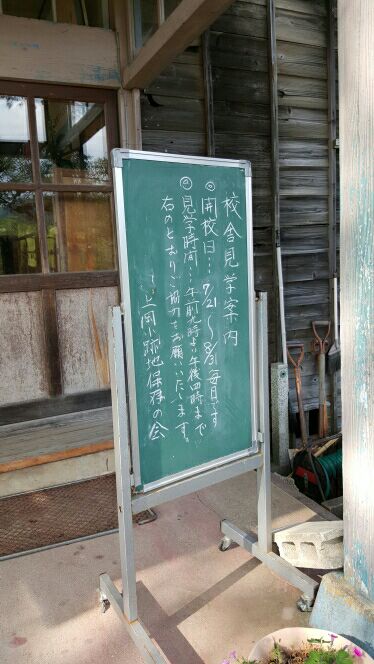 校舎見学案内
◎開校日…7/21～8/31毎日です
◎見学時間…午前九時より午後四時まで
右のとおりご協力をお願いいたします。
上岡小跡地保存の会